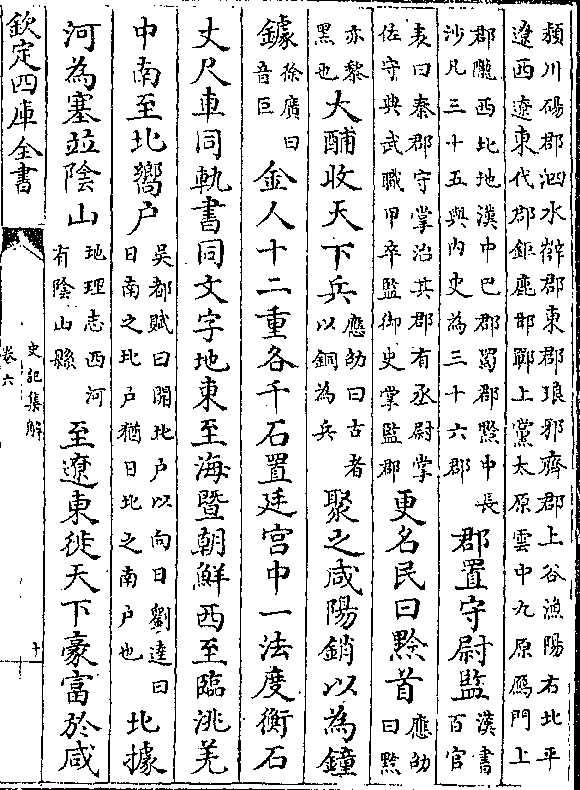 頴川碭郡泗水薛郡東郡琅邪齊郡上谷漁陽右北平
遼西遼東代郡鉅鹿邯鄲上黨太原雲中九原鴈門上
郡隴西北地漢中巴郡蜀郡黔中長
沙凡三十五與内史為三十六郡
郡置守尉監
漢書
百官
表曰秦郡守掌治其郡有丞尉掌
佐守典武職甲卒監御史掌監郡
更名民曰黔首
應劭
曰黔
亦黎
黑也
大酺收天下兵
應劭曰古者
以銅為兵
聚之咸陽銷以為鐘
鐻
徐廣曰
音巨
金人十二重各千石置廷宫中一法度衡石
丈尺車同軌書同文字地東至海暨朝鮮西至臨洮羌
中南至北嚮户
吳都賦曰開北户以向日劉逵曰
日南之北户猶日北之南户也
北據
河為塞並陰山
地理志西河
有陰山縣
至遼東徙天下豪富於咸
欽定四庫全書
史記集解
卷六
十